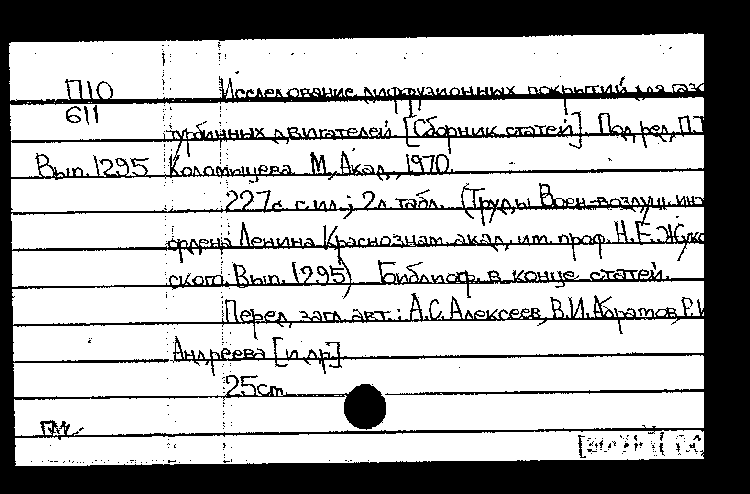 П10 Исследование диффузионных покрытий для газо
611
турбинных двигателей. [Сборник статей]. Под ред. П.Т.
Вып. 1295 Коломыцева. М., Акад., 1970.
227с. с ил.; 2л. табл. (Труды Воен.-воздуш. инж
ордена Ленина Краснознам. акад. им. проф. Н.Е. Жуко
ского. Вып. 1295) Библиогр. в конце статей.
Перед загл. авт.: А.С. Алексеев, В.И. Абрамов, Р.И
Андреева [и др].
25cm